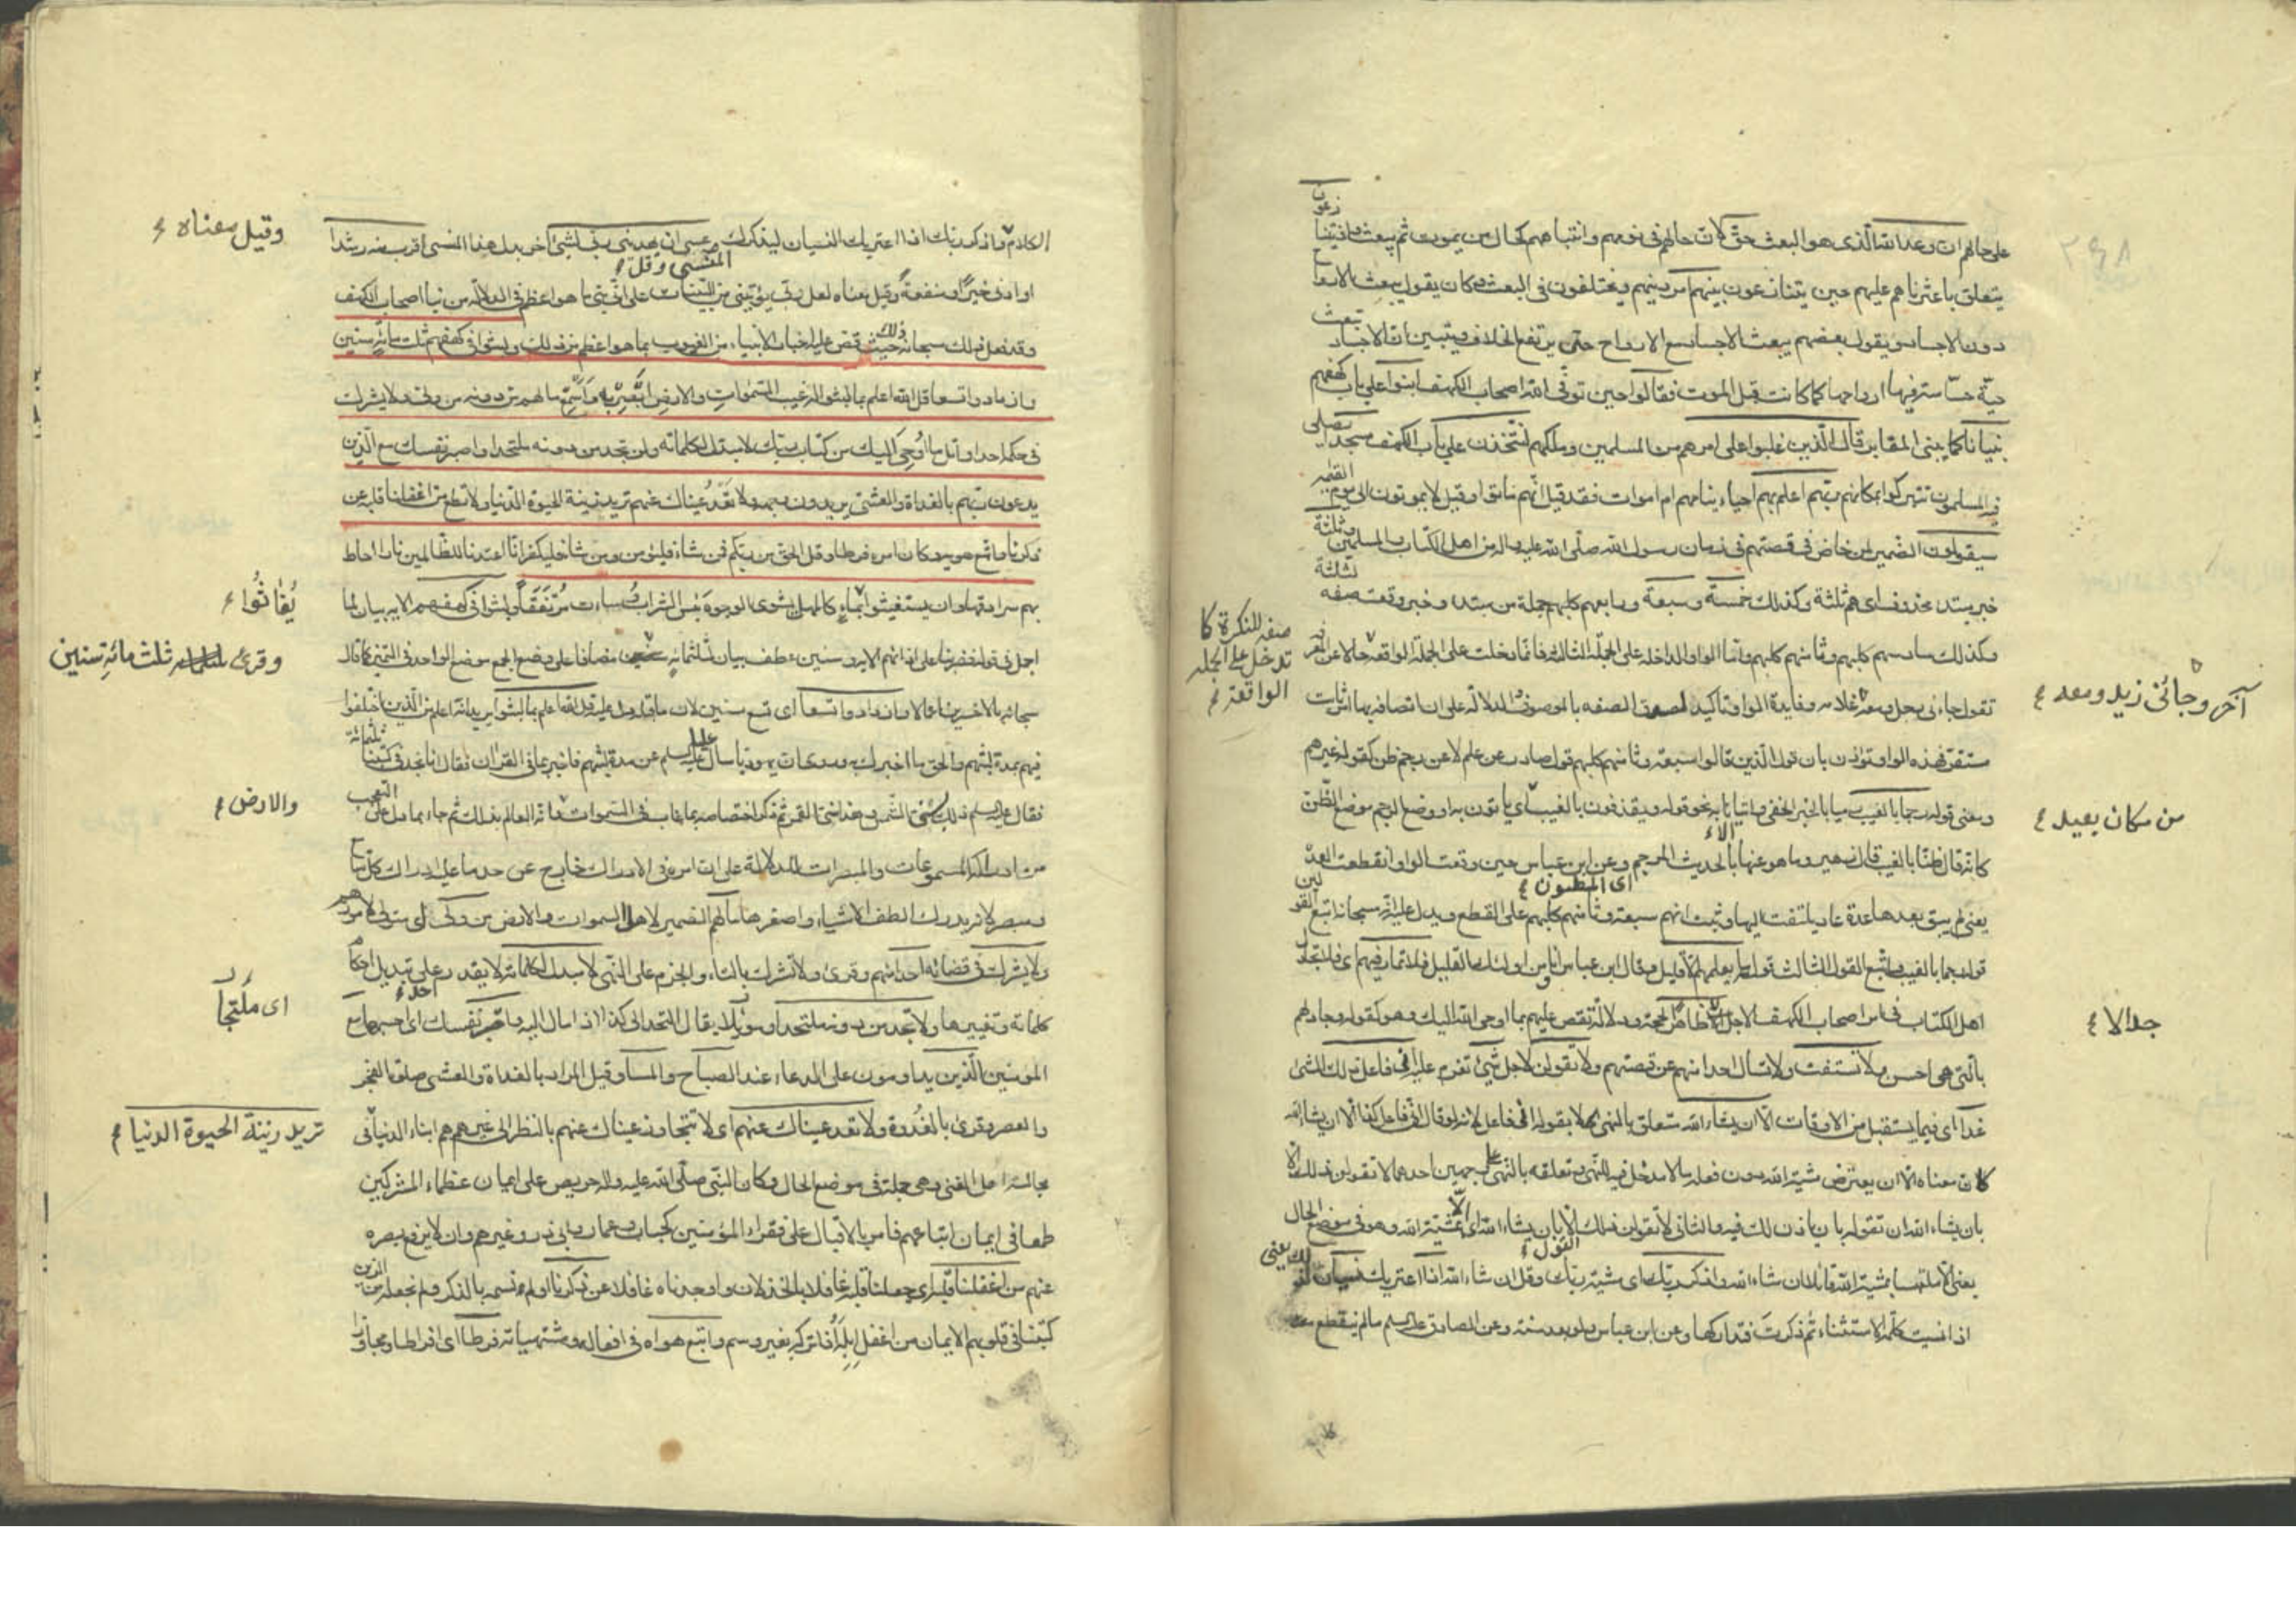 على حالهم ان وعد الله الذى هو البعث حق لان حالهم فى نومهم وانتباههم كحال من يموت ثم يبعث واذ يتنازعون
يتعلق باعثرنا اى اعثرناهم عليهم حين يتنازعون بينهم امر دينهم ويختلفون فى البعث فكان يقول بعضهم تبعث الارواح
دون الاجساد ويقول بعضهم يبعث الاجساد مع الارواح حتى يرتفع الخلاف ويتبين ان الاجساد تبعث
حيّة حسّاسة فيها ارواحها كما كانت قبل الموت فقالوا حين توفّى الله اصحاب الكهف ابنوا على باب كهفهم
بنيانا كما يبنى المقابر قال الّذين غلبوا على امرهم من المسلمين وملكهم لنتّخذنّ على باب الكهف مسجدا يصلى
فيه المسلمون تتبرك بمكانهم ربهم اعلم بهم احياء نيام هم ام اموات فقد قيل انّهم ماتوا وقيل لا يموتون الى يوم القيمة
سيقولون الضمير لمن خاض فى قصتهم فى زمان رسول الله صلّى الله عليه واله من اهل الكتاب والمسلمين وثلثة
خبر مبتدء محذوف اى هم ثلثة وكذلك خمسة وسبعة ورابعهم كلبهم جملة من مبتدء وخبر وقعت صفه لثلثة
وكذلك سادسهم كلبهم وثامنهم كلبهم واما الواو الداخلة على الجملة الثالثة فانها دخلت على الجملة الواقعة حالا عن المعرفة
صفه للنكرة كما
تدخل على الجملة
الواقعة
تقول جاءنى رجل ومعه غلامه وفايدة الواو تاكيد لصوق الصفه بالموصوف والدلالة على ان اتصافه بها امر ثابت
آخر وجائنى زيد ومعه
مستقر فهذه الواو تؤذن بان قول الذين قالوا سبعة وثامنهم كلبهم قول صادر عن علم لا عن رجم ظن كقول غيرهم
ومعنى قوله رجما بالغيب رميا بالخبر الخفى واتيانا به نحو قوله ويقذفون بالغيب اى ياتون به او وضع الرجم موضع الظن
من مكان بعيد
كانه قال ظنا بالغيب قال زهير وما هو عنها بالحديث المرجم وعن ابن عباس حين وقعت الواو انقطعت العدة
اى المظنون
يعنى لم يبق بعدها عدة عاد يلتفت اليها وثبت انهم سبعة وثامنهم كلبهم على القطع ويدل عليه انه سبحانه اتبع القولين
قوله رجما بالغيب واتبع القول الثالث قوله ما يعلمهم الا قليل وقال ابن عباس انا من اولئك القليل فلا تمار فيهم اى فلا تجادل
اهل الكتاب فى امر اصحاب الكهف الا جدالا ظاهرا بحجة ودلالة تقص عليهم بما اوحى الله اليك وهو كقوله وجادلهم
جدالا
بالتى هى احسن ولا تستفت ولا تسال احدا منهم عن قصتهم ولا تقولن لاجل شئ تعزم عليه انى فاعل ذلك الشئ
غدا اى فيما يستقبل من الاوقات الا ان يشاء الله متعلق بالنهى لا بقوله انى فاعل لانه لو قال انى فاعل كذا الا ان يشاء الله
كان معناه الا ان يعترض مشية الله دون فعله وذلك مالا مدخل فيه للنهى وتعلقه بالنهى على وجهين احدهما لا تقولن ذلك القول الا
بان يشاء الله ان تقوله بان ياذن لك فيه والثانى لا تقولن ذلك الا بان يشاء الله اى بمشية الله وهو فى موضع الحال
يعنى الا ملتبسا بمشية الله قائلا ان شاء الله واذكر ربك اى مشية ربك وقل ان شاء الله اذا اعتريك نسيان لذلك يعنى
اذا نسيت كلمة الاستثناء ثم ذكرت فتداركها وعن ابن عباس ولو بعد سنة وعن الصادق عليه السلم ما لم ينقطع
الكلام واذكر ربك اذا اعتريك النسيان ليذكرك المنسى وقل عسى ان يهدينى ربى لشئ اخر بدل هذا المنسى اقرب منه رشدا
وقيل معناه
او ادنى خيرا ومنفعة وقيل معناه لعل ربى يؤتينى من البينات على انى نبى ما هو اعظم فى الدلالة من نبأ اصحاب الكهف
وقد فعل ذلك سبحانه حيث قص عليه اخبار الانبياء من الغيوب بما هو اعظم من ذلك ولبثوا فى كهفهم ثلث مائة سنين
وازدادوا تسعا قل الله اعلم بما لبثوا له غيب السموات والارض ابصر به واسمع ما لهم من دونه من ولى ولا يشرك
فى حكمه احدا واتل ما اوحى اليك من كتاب ربك لا مبدل لكلماته ولن تجد من دونه ملتحدا واصبر نفسك مع الذين
يدعون ربهم بالغداة والعشى يريدون وجهه ولا تعد عيناك عنهم تريد زينة الحيوة الدنيا ولا تطع من اغفلنا قلبه عن
ذكرنا واتبع هويه وكان امره فرطا وقل الحق من ربكم فمن شاء فليؤمن ومن شاء فليكفر انا اعتدنا للظالمين نارا احاط
بهم سرادقها وان يستغيثوا يغاثوا بماء كالمهل يشوى الوجوه بئس الشراب وساءت مرتفقا ولبثوا فى كهفهم الاية بيان لما
يُغاثُوا
اجمل فى قوله فضربنا على اذانهم الاية وسنين عطف بيان لثلثمائة مضافا على وضع الجمع موضع الواحد فى التميز كما قال
وقرئ ثلث مائةِ سنين
سبحانه بالاخسرين اعمالا وازدادوا تسعا اى تسع سنين لان ما قبله يدل عليه قل الله اعلم بما لبثوا يريد انه اعلم من الذين اختلفوا
فيهم بمدة لبثهم والحق ما اخبرك به وروى ان يهوديا سال عليا عليه السلم عن مدة لبثهم فاخبر بما فى القران فقال انا نجد فى كتبنا ثلثمائة
فقال عليه السلم ذلك بسنى الشمس وهذا بسنى القمر ثم ذكر اختصاصه بما غاب فى السموات والارض وانه العالم بذلك ثم جاء بما دل على التعجب
والارض
من ادراكه المسموعات والمبصرات للدلالة على ان امره فى الادراك خارج عن حد ما عليه ادراك كل سامع
ومبصر لانه يدرك الطف الاشياء واصغرها ما لهم الضمير لاهل السموات والارض من ولى اى متول لامورهم
ولا يشرك فى قضائه احدا منهم وقرئ ولا تشرك بالتاء والجزم على النهى لا مبدل لكلماته لا يقدر على تبديل احكام
كلماته وتغييرها ولا تجد من دونه ملتحدا وموئلا يقال التحد الى كذا اذا مال اليه واصبر نفسك اى احبسها مع
اى مُلتجأ
المؤمنين الّذين يداومون على الدعاء عند الصباح والمساء وقيل المراد بالغداة والعشى صلوة الفجر
والعصر وقرئ بالغدوة ولا تعد عيناك عنهم اى لا تتجاوز عيناك عنهم بالنظر الى غيرهم هم ابناء الدنيا فى
تريد زينة الحيوة الدنيا
مجالسة اهل الغنى وهى جملة فى موضع الحال وكان النبى صلّى الله عليه واله حريصا على ايمان عظماء المشركين
طمعا فى ايمان اتباعهم فامر بالاقبال على فقراء المؤمنين كخباب وعمار وابى ذر وغيرهم وان لا يرفع بصره
عنهم من اغفلنا قلبه اى جعلنا قلبه غافلا بالخذلان او وجدناه غافلا عن ذكرنا او لم نسمه بالذكر ولم نجعله من الذين
كتبنا فى قلوبهم الايمان من اغفل ابله اذا تركه بغير وسم واتبع هواه فى افعاله ومشتهياته فرطا اى افراطا وتجاوزا